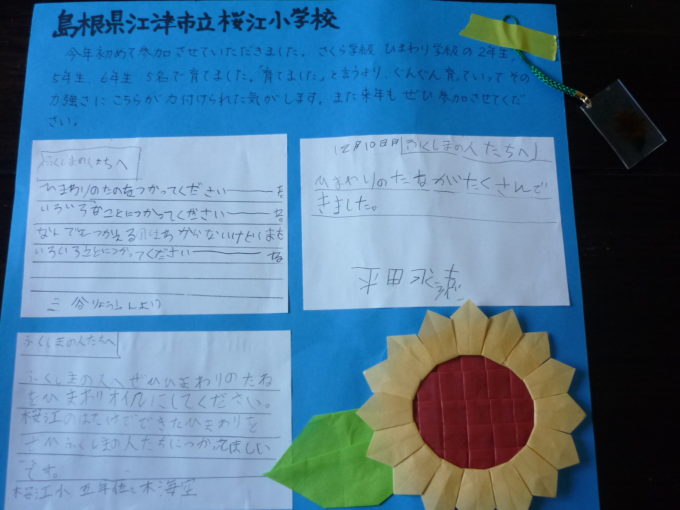 島根県江津市立桜江小学校
今年初めて参加させていただきました。さくら学級 ひまわり学級の2年生、
5年生、6年生 5名で育てました。"育てました"と言うより、ぐんぐん育っていって その
力強さに こちらが 力付けられた気がします。また来年も ぜひ 参加させてくだ
さい。
ふくしまの人たちへ
ひまわりのたのをつかってください
いろいろなことにつかってください
なんで
いろいろなことにつかってください
三谷
12月10日
ふくしまの人たちへ
ひまわりのたねがたくさんで
きました。
平田
ふくしまの人たちへ
ふくしまの人へぜひひまわりのたね
をひまわりオイルにしてください。
桜江のはたけでできたひまわりを
ぜひふくしまの人たちにつかってほしい
です。
桜江小 五年